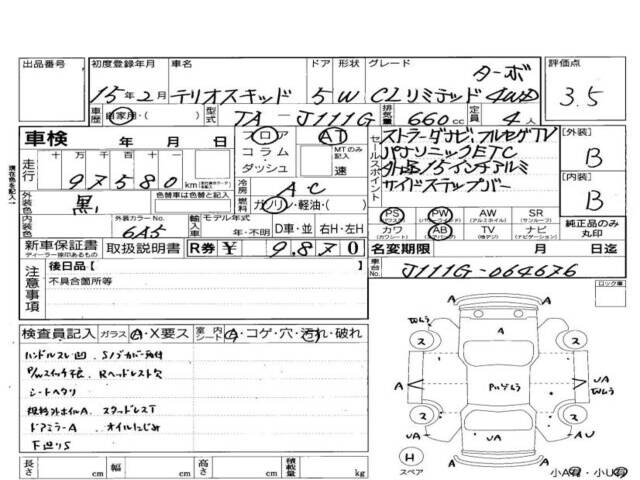 出品番号 初度登録年月 車名 ドア 形状 グレード 評価点
ターボ
15年2月 テリオスキッド 5 W CLリミテッド 4WD 3.5
車歴 自家用・( ) 型式 TA-J111G 排気量 660cc 定員 4人
車検 年 月 日
フロア AT
コラム MTのみ記入
ダッシュ 速
セールスポイント
ストラーダナビ、フルセグTV
パナソニックETC
社外15インチアルミ
サイドステップバー
[外装] B
[内装] B
走行 十万 万 千 百 十
97580km
冷房 AC
燃料 ガソリン・軽油・( )
外装色 黒 色替車は色替前と記入
外装カラーNo. 6A5
内装色
輸入車 モデル年式 年・不明 D車・並 右H・左H
PS PW AW SR
(パワステ) (パワーウインド) (アルミホイル) (サンルーフ)
カワ AB TV ナビ
(カワシート) (エアバッグ) (地デジ) (ナビゲーション)
純正品のみ丸印
新車保証書 取扱説明書 R券 ¥ 9,870
ディーラー捺印あるもの
名変期限 月 日迄
注意事項 後日品【 】
不具合箇所等
車台No. J111G-064676
ロック車
検査員記入 ガラス A・X要ス 室内シート A・コゲ・穴・汚れ・破れ
ハンドルスレ凹
P/Wスイッチ Rヘッドレスト欠
シートヘタリ
スタッドレスT
ドアミラーA オイルにじみ
下廻りS
長さ cm 幅 cm 高さ cm 積載量 kg
A
A
A
UA
UA
A
UA
AU
H
スペア
A
小A有・小U有